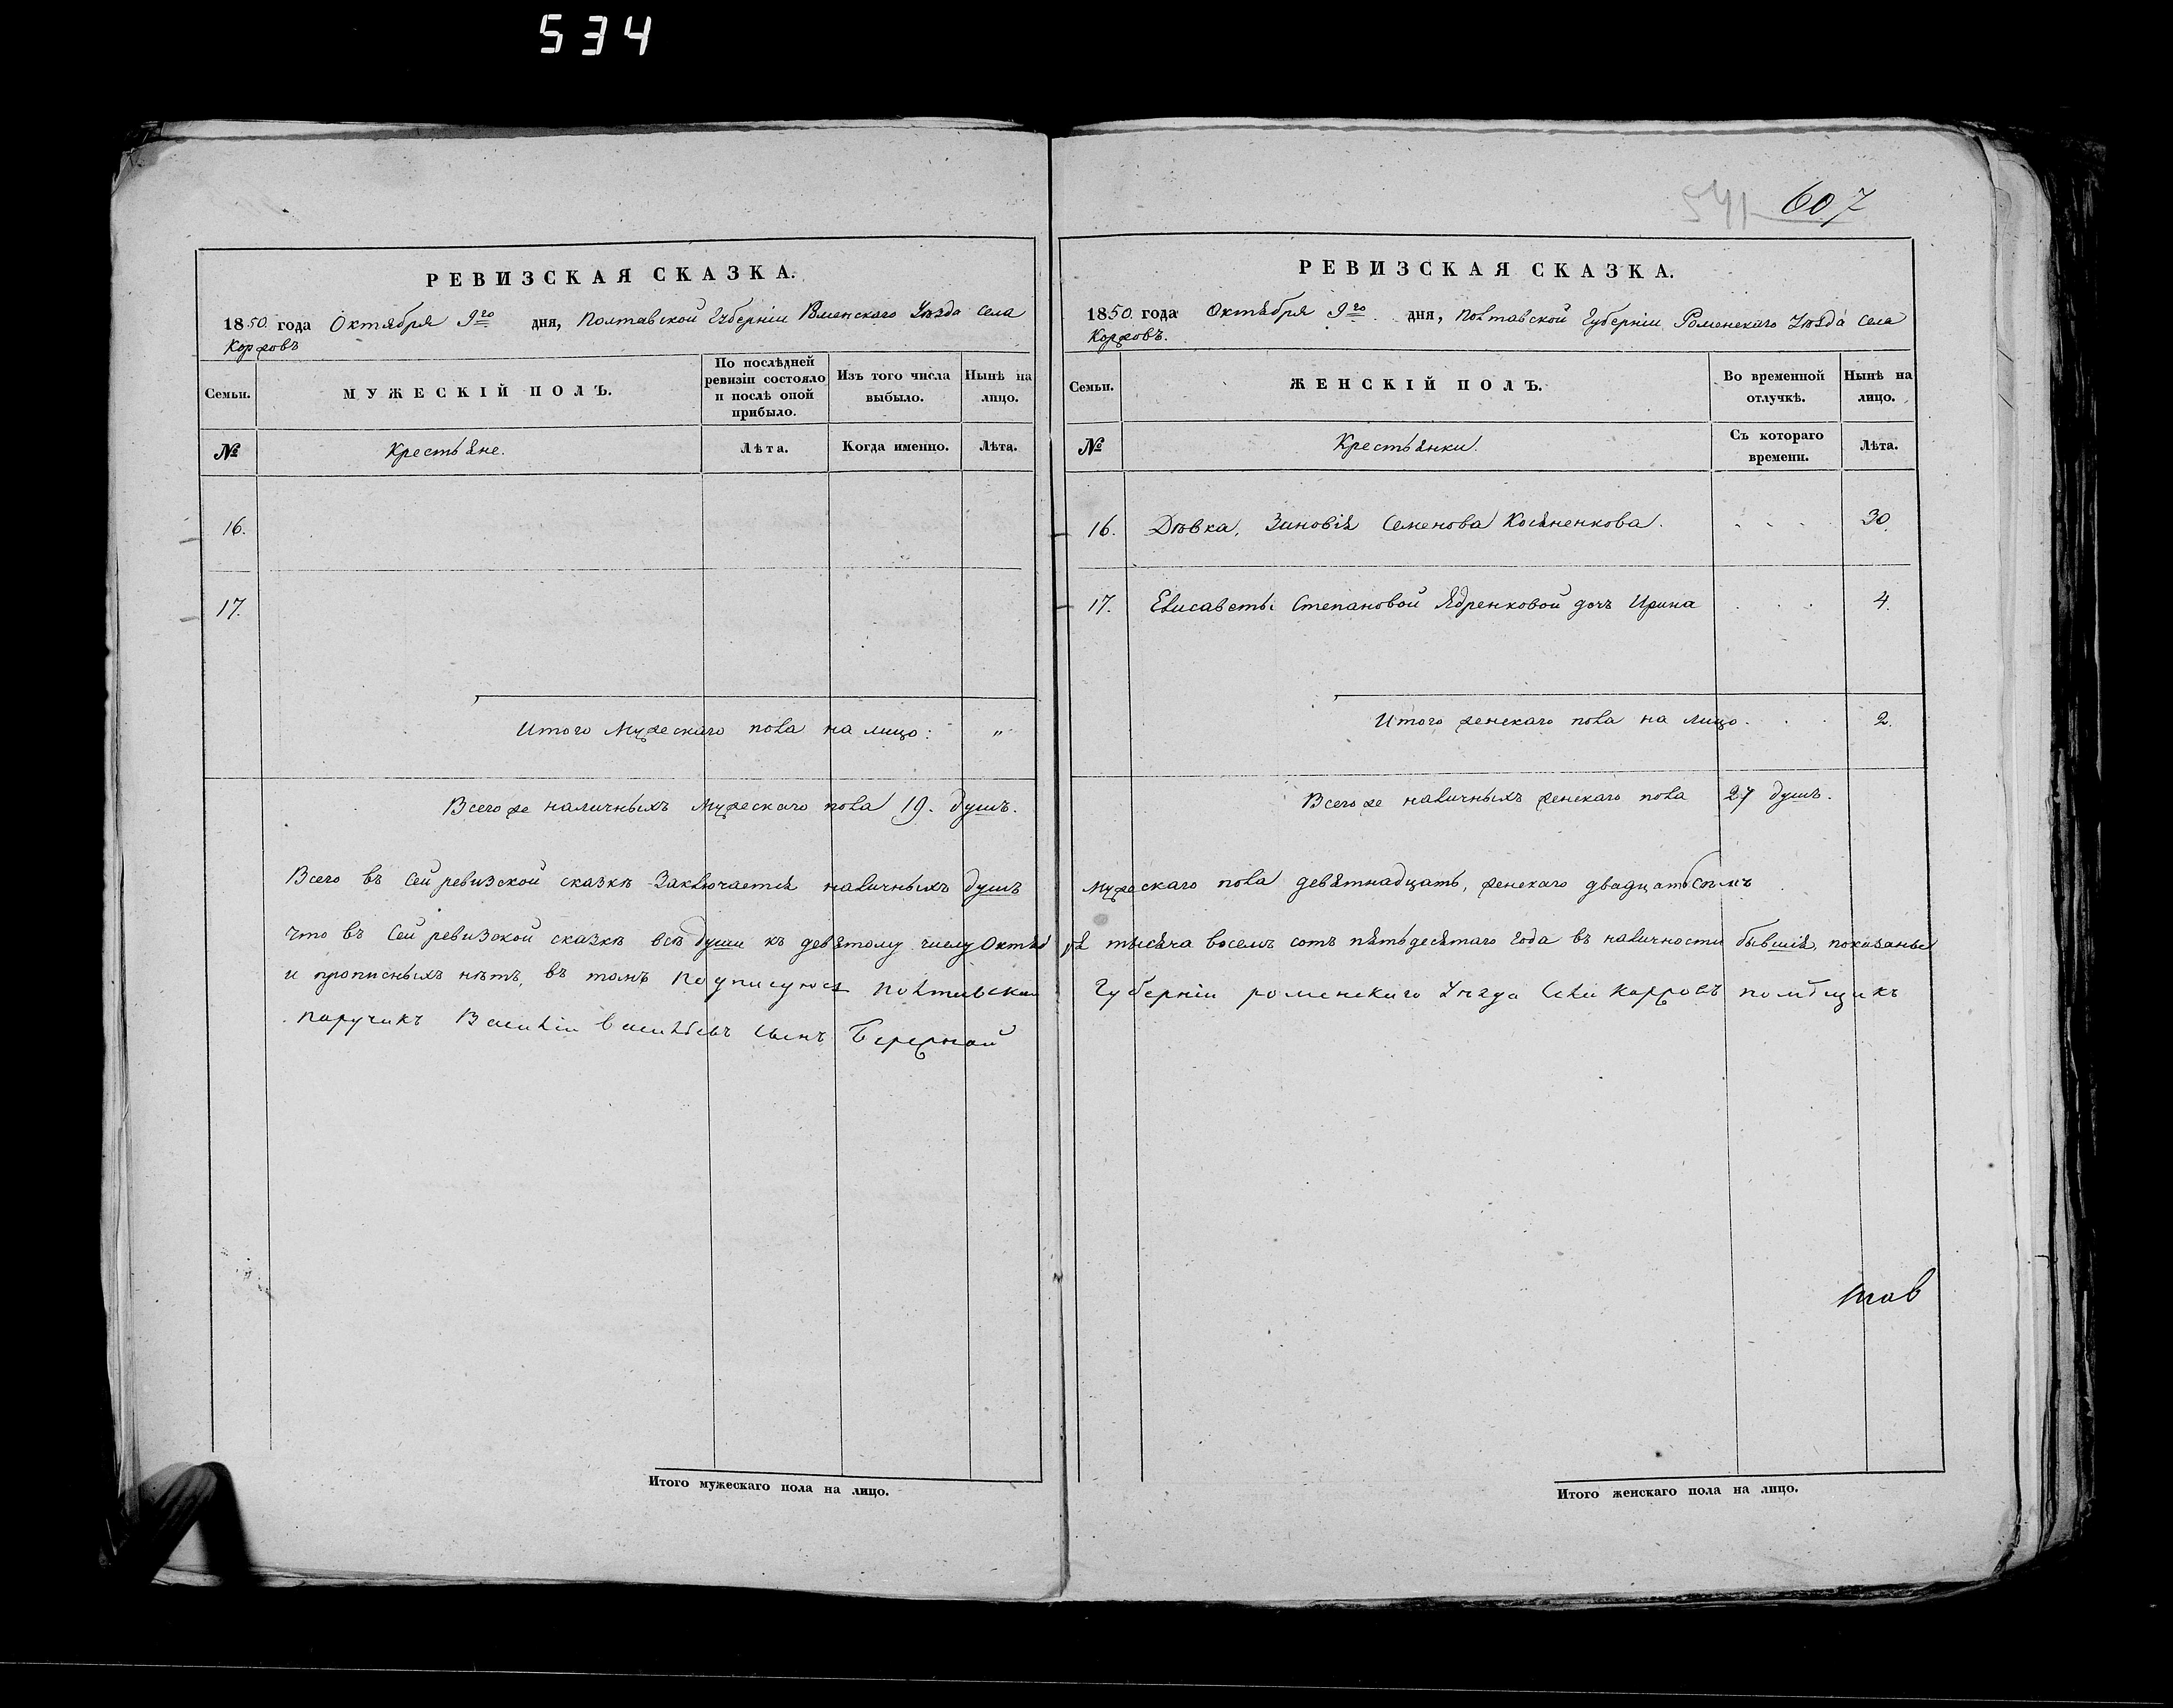 534
541 607
РЕВИЗСКАЯ СКАЗКА.
1850. года Октября 9го дня, Полтавской Губерніи Роменскаго Уѣзда села
Коржовъ
Семьи. МУЖЕСКІЙ ПОЛЪ. По послѣдней ревизіи состояло и послѣ оной прибыло. Изъ того числа выбыло. Нынѣ на лицо.
№ Крестьяне. Лѣта. Когда именно. Лѣта.
16.
17.
Итого Мужескаго пола на лицо: "
Всего же наличныхъ мужескаго пола 19. душъ.
РЕВИЗСКАЯ СКАЗКА.
1850. года Октября 9го дня, Полтавской Губерніи Роменскаго Уѣзда села
Коржовъ.
Семьи. ЖЕНСКІЙ ПОЛЪ. Во временной отлучкѣ. Нынѣ на лицо.
№ Крестьянки. Съ котораго времени. Лѣта.
16. Дѣвка, Зиновія Семенова Косяненкова. . . . 30.
17. Елисаветы Степановой Ядренковой дочь Ирина . . . 4.
Итого женскаго пола на лицо. . . 2.
Всего же наличныхъ женскаго пола 27 душъ.
Всего въ сей ревизской сказкѣ Заключается наличныхъ душъ мужескаго пола девятнадцать, женскаго двадцать семь
что въ сей ревизской сказкѣ всѣ души къ девятому числу Октября тысяча восемь сотъ пятьдесятаго года въ наличности бывшія, показаны
и прописныхъ нѣтъ, въ томъ Подписуюсь Полтавской Губерніи роменскаго Уѣзда села Коржовъ помѣщикъ
поручикъ Василій Васильевъ сынъ Бережной
Итого мужескаго пола на лицо.
Итого женскаго пола на лицо.